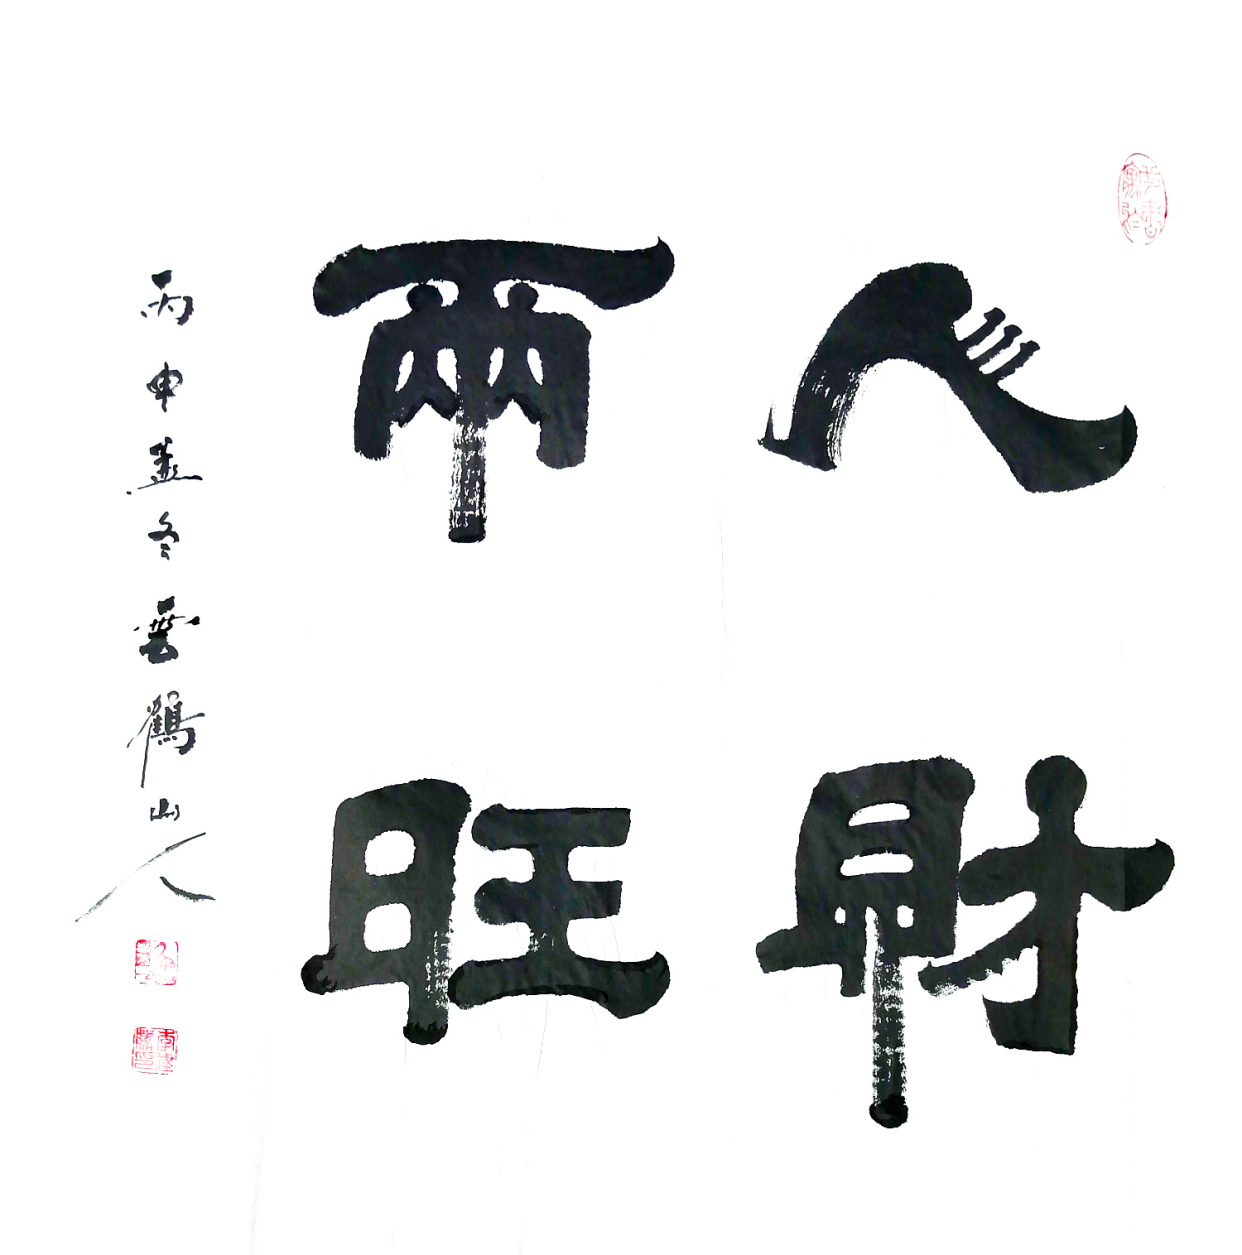 人財
兩旺
丙申孟冬雲鶴山人